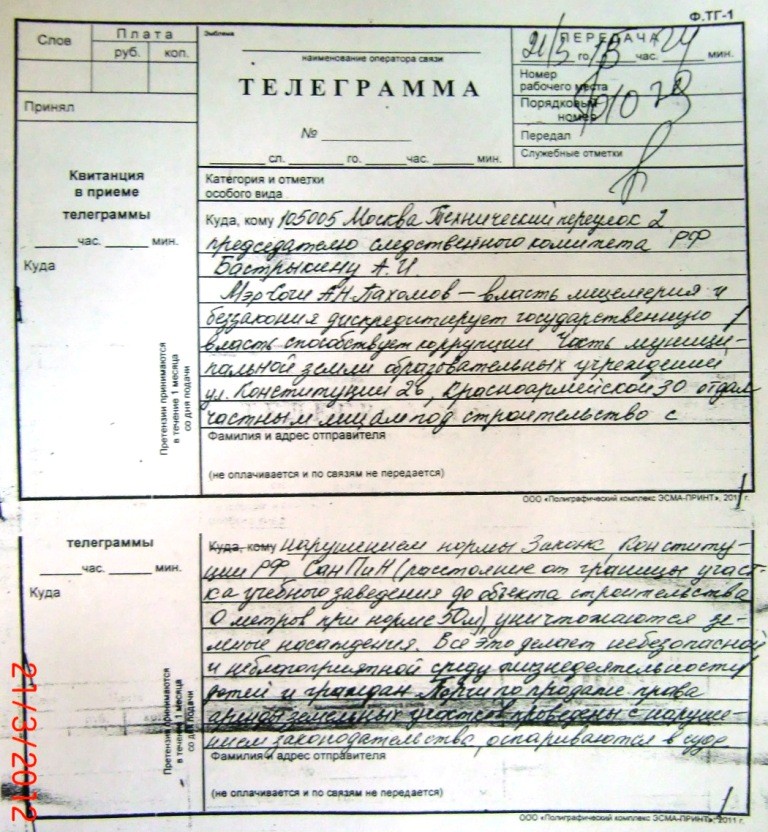 Ф.ТГ-1
Слов
Плата
руб. коп.
Принял
Эмблема
наименование оператора связи
ТЕЛЕГРАММА
№
сл. го. час. мин.
ПЕРЕДАЧА
21/3 го. 13 час. 24 мин.
Номер
рабочего места
Порядковый
номер
Передал
Служебные отметки
Квитанция
в приеме
телеграммы
час. мин.
Куда
Претензии принимаются
в течение 1 месяца
со дня подачи
Категория и отметки
особого вида
Куда, кому 105005 Москва Технический переулок 2
председателю следственного комитета РФ
Бастрыкину А.И.
Мэр Сочи А.Н.Пахомов – власть лицемерия и
беззакония дискредитирует государственную
власть способствует коррупции. Часть муници-
пальной земли образовательных учреждений
ул. Конституции 26, Красноармейской 30 отдал
частным лицам под строительство с
Фамилия и адрес отправителя
(не оплачивается и по связям не передается)
ООО «Полиграфический комплекс ЭСМА-ПРИНТ», 2011 г.
телеграммы
час. мин.
Куда
Претензии принимаются
в течение 1 месяца
со дня подачи
21/3/2012
Куда, кому нарушением нормы Закона, Конститу-
ции РФ СанПиН (расстояние от границы участ-
ка учебного заведения до объекта строительства
0 метров при норме 50м), уничтожаются зе-
лёные насаждения. Всё это делает небезопасной
и неблагоприятной среду жизнедеятельности
детей и граждан Торги по продаже права
аренды земельных участков проведены с наруше-
нием законодательства, оспариваются в суде
Фамилия и адрес отправителя
(не оплачивается и по связям не передается)
ООО «Полиграфический комплекс ЭСМА-ПРИНТ», 2011 г.